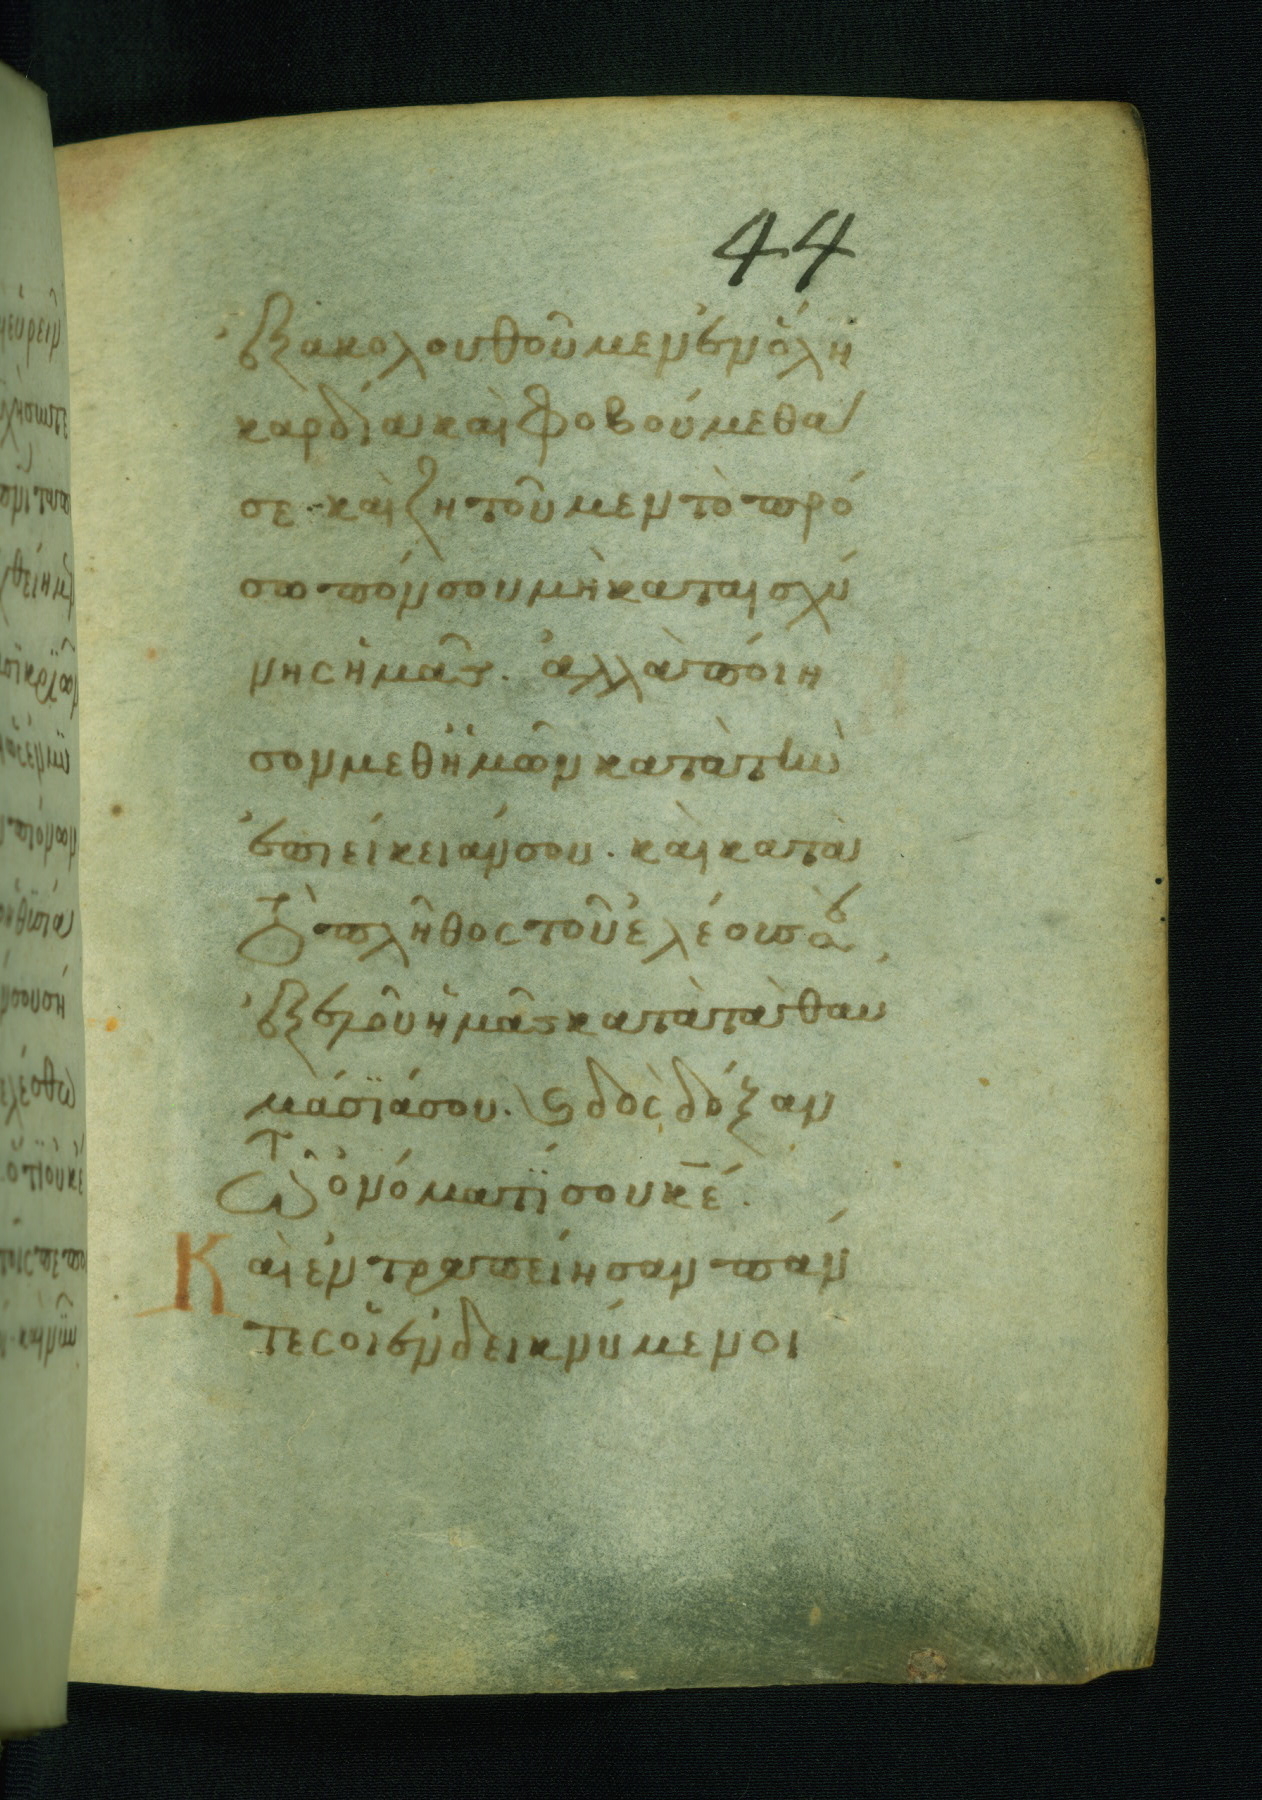 44
ἐξακολουθοῦμεν ἐν ὅλη
καρδία καὶ φοβούμεθά
σε· καὶ ζητοῦμεν τὸ πρό
σωπόν σου μὴ καταισχύ
νης ἡμᾶς. ἀλλὰ ποίη
σον μεθ ἡμῶν κατὰ τὴν
ἐπιείκειάν σου. καὶ κατὰ
τὸ πλῆθος τοῦ ἐλέους σου,
ἐξελοῦ ἡμᾶς κατὰ τὰ θαυ
μάσϊά σου. ϛ δὸς δόξαν
τῶ ὀνόματϊ σου κ̅ε̅.
Καὶ ἐντραπείησαν πάν
τες οἱ ἐνδεικνύμενοι